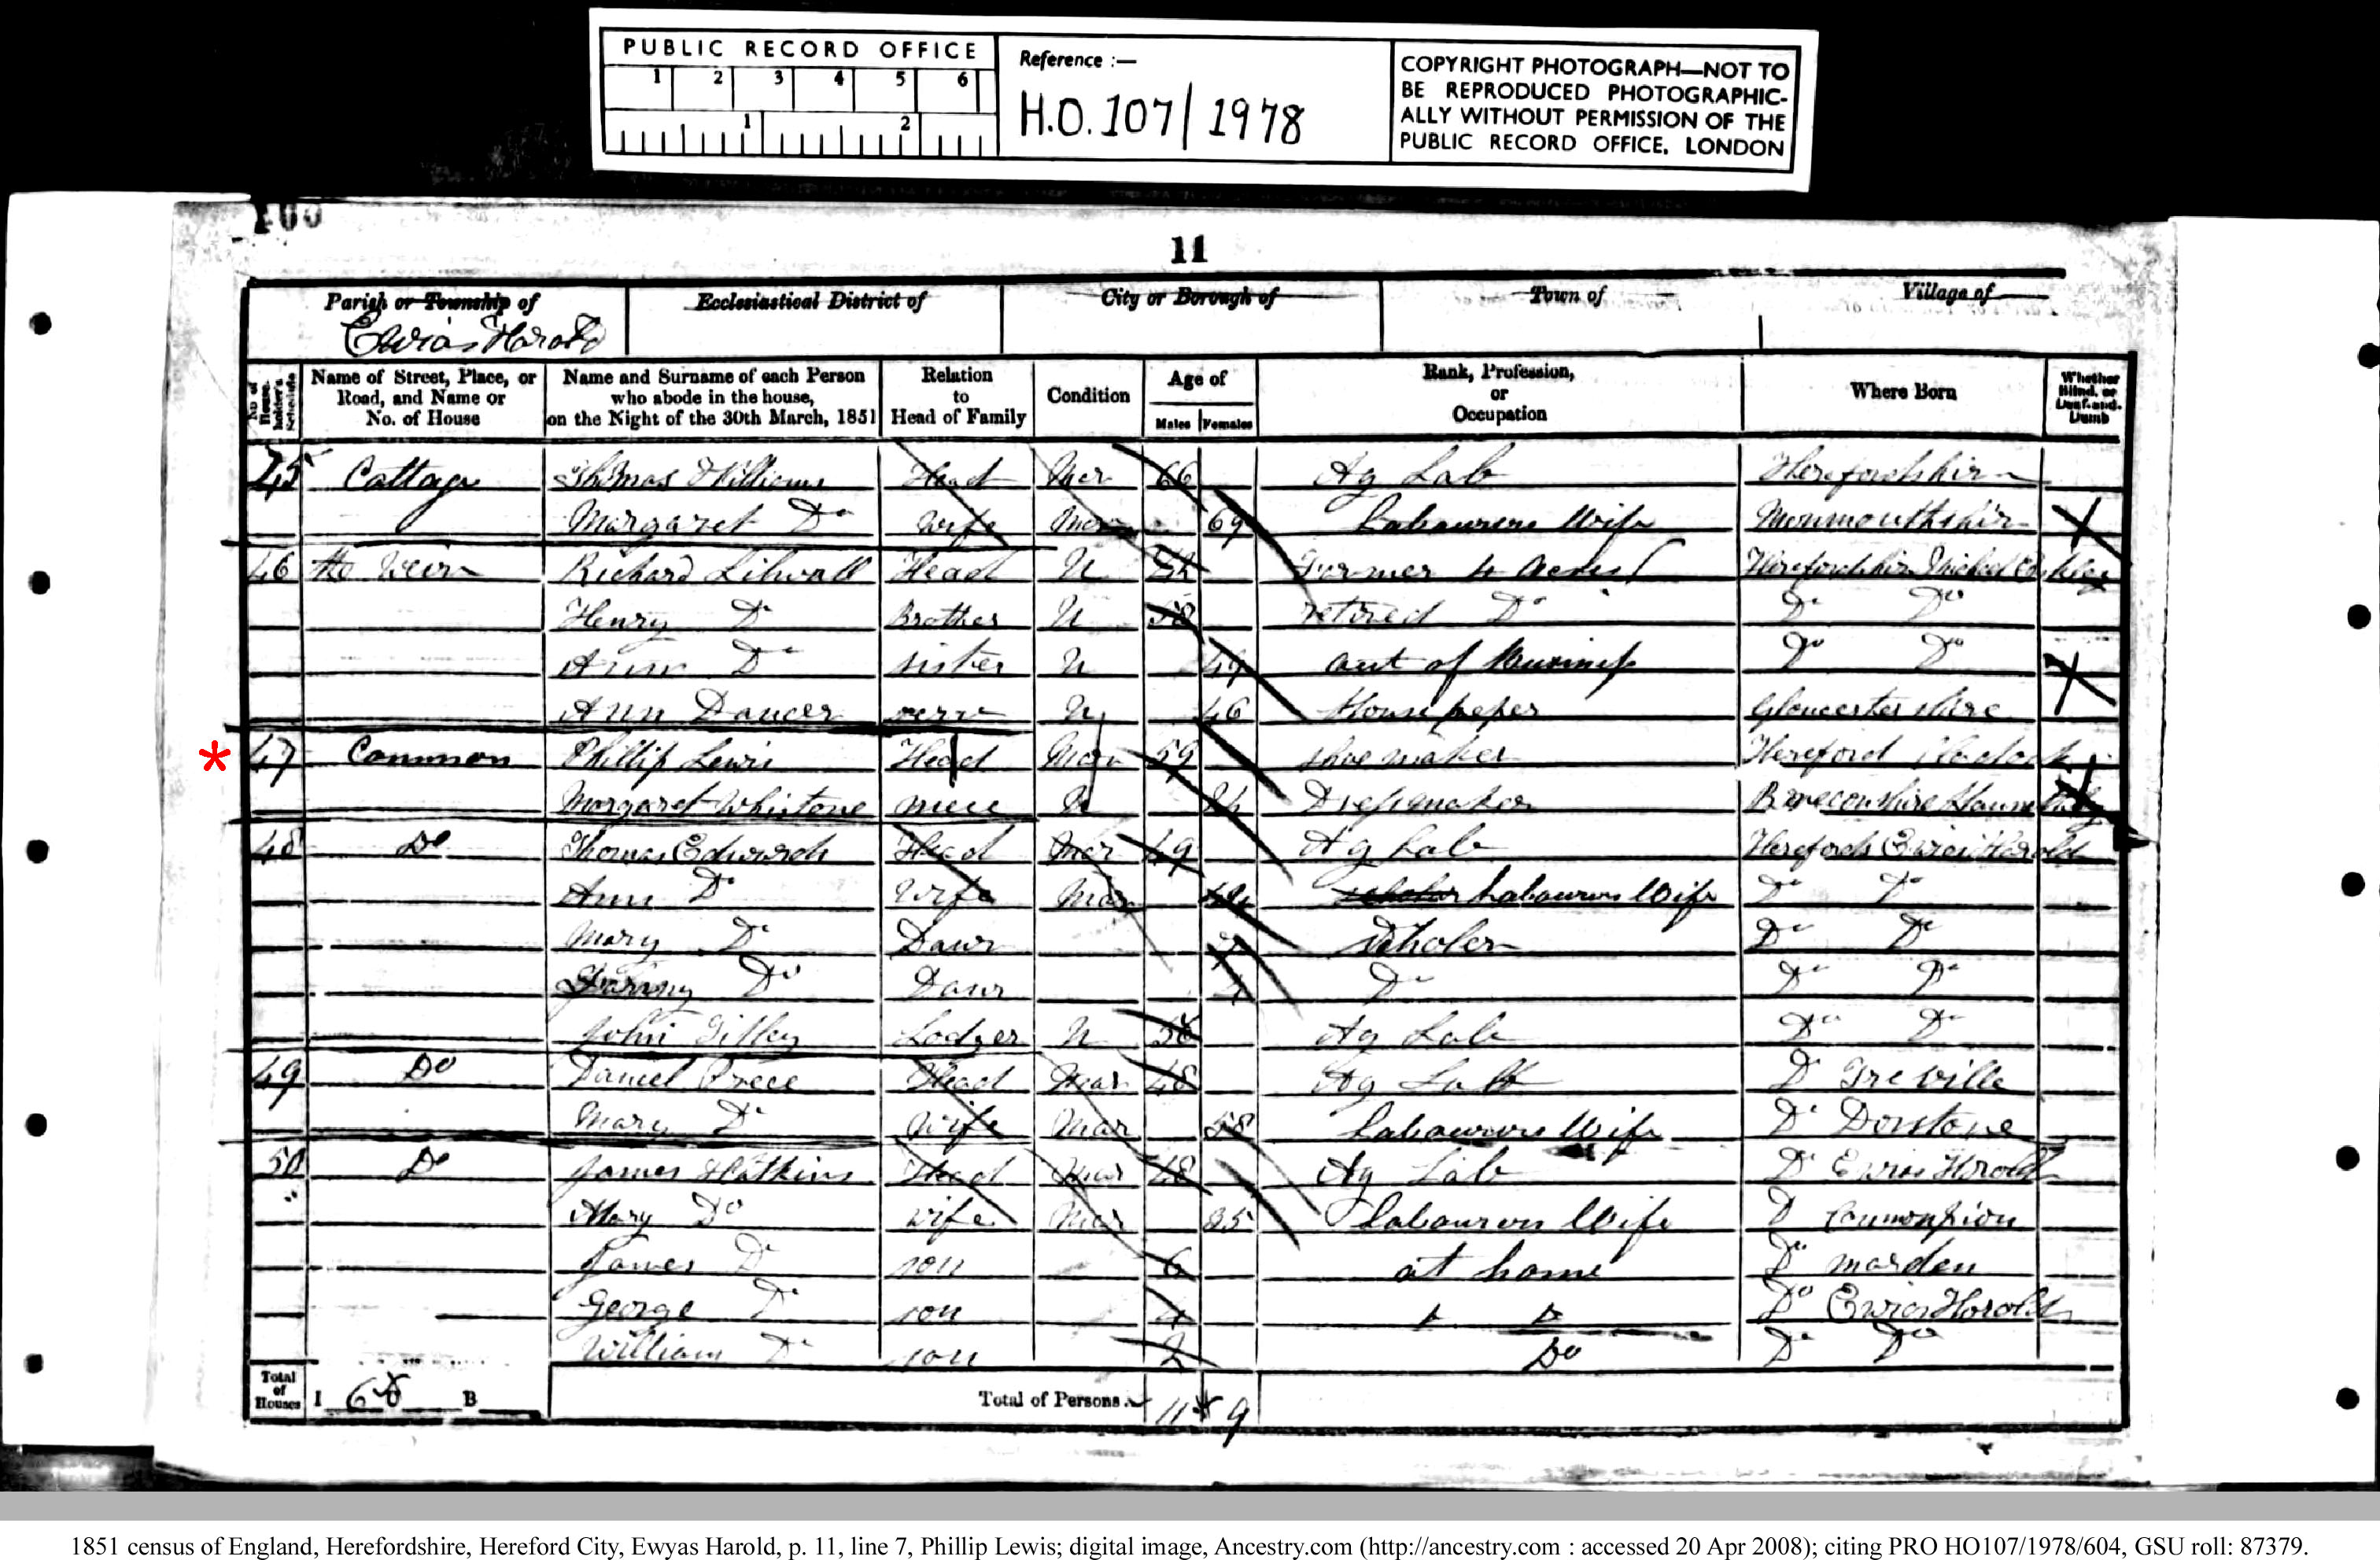 PUBLIC RECORD OFFICE
1 2 3 4 5 6
1 2
Reference :—
H.O. 107/1978
COPYRIGHT PHOTOGRAPH—NOT TO
BE REPRODUCED PHOTOGRAPHIC-
ALLY WITHOUT PERMISSION OF THE
PUBLIC RECORD OFFICE, LONDON
11
Parish or Township of
Ewias Harold
Ecclesiastical District of
City or Borough of
Town of
Village of
No. of House-holder's Schedule
Name of Street, Place, or Road, and Name or No. of House
Name and Surname of each Person who abode in the house, on the Night of the 30th March, 1851
Relation to Head of Family
Condition
Age of
Males Females
Rank, Profession, or Occupation
Where Born
Whether Blind, or Deaf-and-Dumb
45 Cottage Thomas Williams Head Mar 66 Ag Lab Herefordshire
Margaret Do wife Mar 69 Labourers Wife Monmouthshire
46 the Weir Richard Lilwall Head U 52 Farmer 4 acres Herefordshire
Henry Do Brother U 58 retired Do Do Do
Ann Do sister U 49 out of business Do Do
Ann Dancer serv U 46 House keeper Gloucestershire
* 47 Common Phillip Lewis Head Mar 59 shoe maker Hereford
Margaret Whistone niece U 24 Dressmaker
48 Do Thomas Edwards Head Mar 49 Ag Lab Hereford Ewias Harold
Ann Do Wife Mar Labourers Wife Do Do
Mary Do Daur Scholar Do Do
Do Daur Do Do Do
John Gilley Lodger U Ag Lab Do Do
49 Do Daniel Preece Head Mar 48 Ag Lab Do Treville
Mary Do Wife Mar 58 Labourers Wife Do Dorstone
50 Do James Watkins Head Mar 48 Ag Lab Do Ewias Harold
Mary Do wife Mar 35 Labourers Wife Do
James Do son 6 at home Do marden
George Do son 4 Do Ewias Harold
William Do son 2 Do Do Do
Total of Houses I 6 B
Total of Persons 11 9
1851 census of England, Herefordshire, Hereford City, Ewyas Harold, p. 11, line 7, Phillip Lewis; digital image, Ancestry.com (http://ancestry.com : accessed 20 Apr 2008); citing PRO HO107/1978/604, GSU roll: 87379.